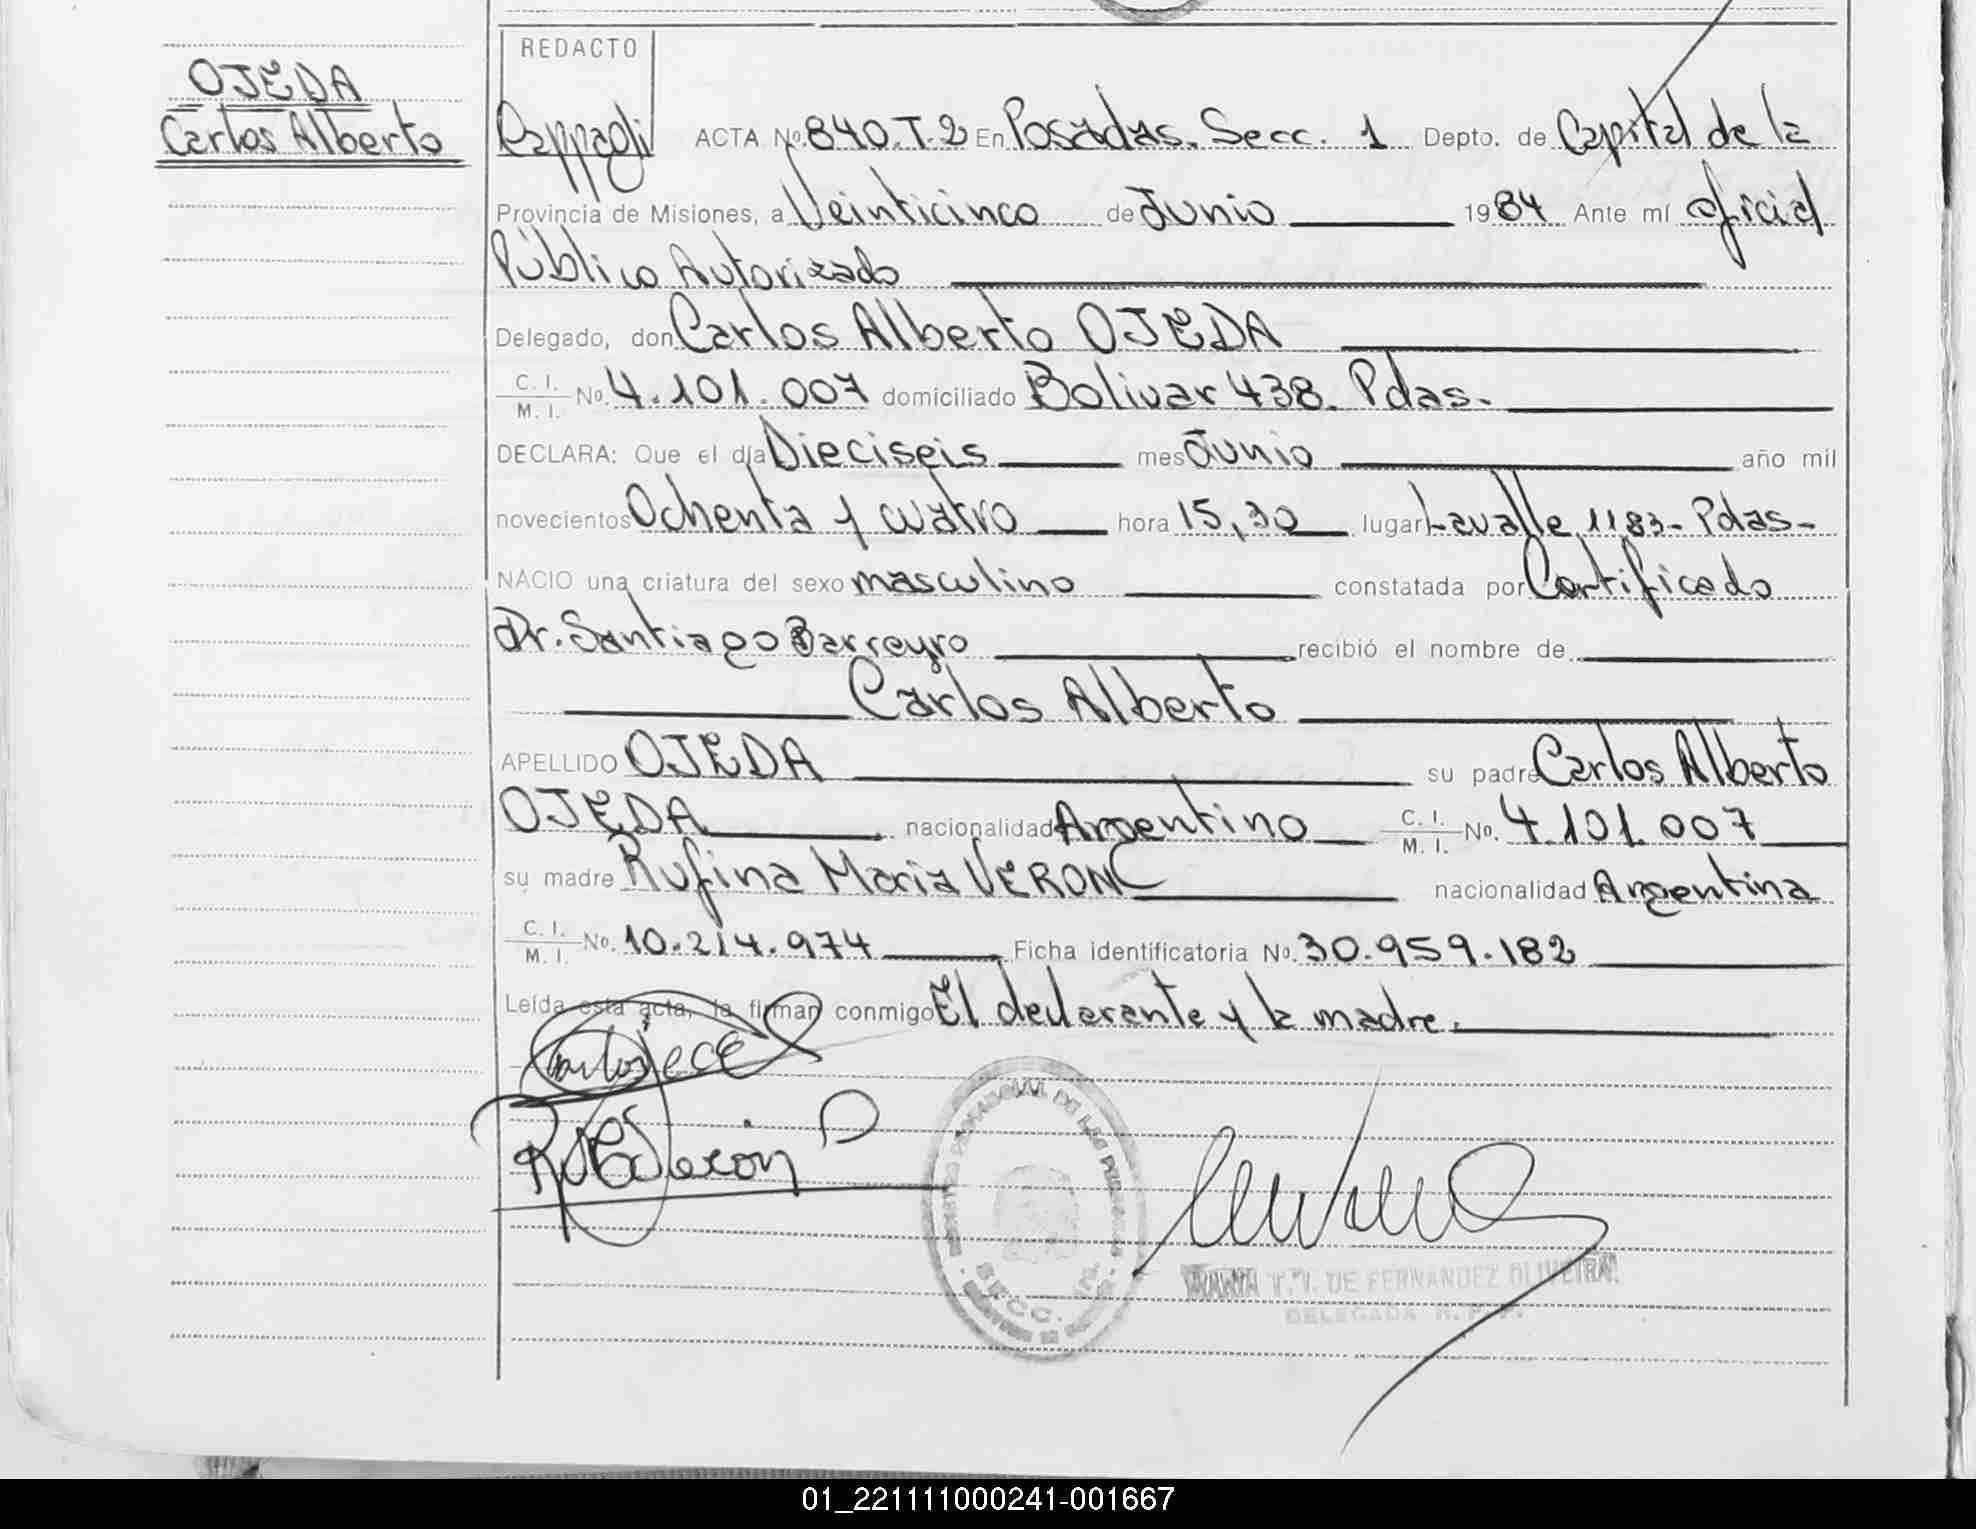 OJEDA
Carlos Alberto
REDACTO
ACTA Nº 840.T.2 En Posadas. Secc. 1 Depto. de Capital de la
Provincia de Misiones, a Veinticinco de Junio 1984 Ante mí oficial
Público Autorizado
Delegado, don Carlos Alberto OJEDA
C. I. M. I. Nº. 4.101.007 domiciliado Bolivar 438. Pdas.
DECLARA: Que el día Dieciseis mes Junio año mil
novecientos Ochenta y cuatro hora 15,30 lugar Lavalle 1183- Pdas-
NACIO una criatura del sexo masculino constatada por Certificado
Dr. Santiago Barreyro recibió el nombre de
Carlos Alberto
APELLIDO OJEDA su padre Carlos Alberto
OJEDA nacionalidad Argentino C. I. M. I. Nº. 4.101.007
su madre Rufina Maria VERON nacionalidad Argentina
C. I. M. I. Nº. 10.214.974 Ficha identificatoria Nº. 30.959.182
Leída esta acta, la firman conmigo El declarante y la madre.
REGISTRO PROVINCIAL DE LAS PERSONAS
SECC. 1a.
DE FERNANDEZ OLIVEIRA
DELEGADA R. P. P.
01_221111000241-001667